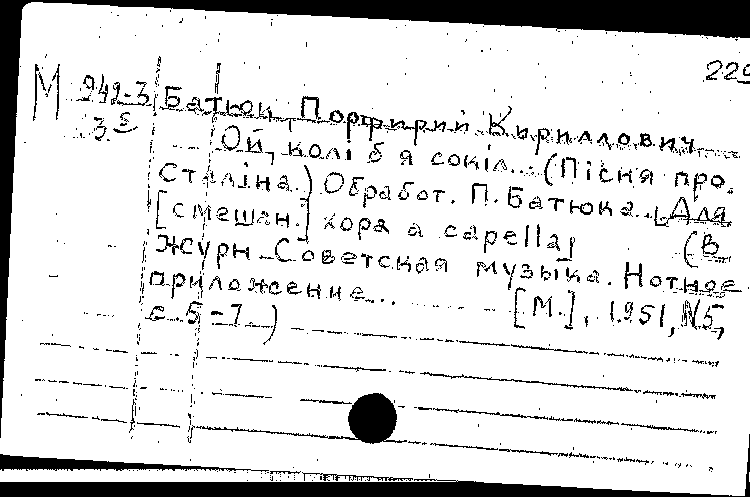 229
М 942-3 Батюк, Порфирий Кириллович
3 5
Ой, колі б я сокіл... (Пісня про
Сталіна.) Обработ. П. Батюка. [Для
[смешан.] хора а capella] (В
журн. Советская музыка. Нотное
приложение... [М.], 1951, №5,
с. 5-7.)